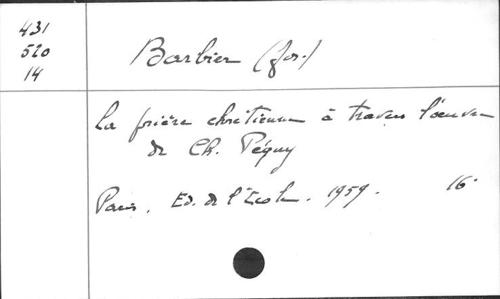 431
520
14
Barbier (Jos.)
La prière chrétienne à travers l'œuvre
de Ch. Péguy
Paris. Ed. de l'Ecole. 1959. 16°